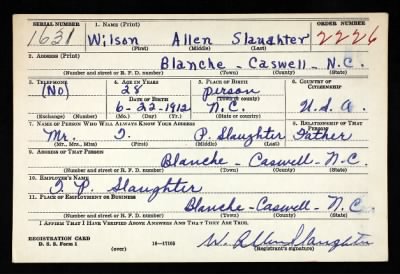 SERIAL NUMBER 1. NAME (Print) ORDER NUMBER
1631 Wilson Allen Slaughter 2226
(First) (Middle) (Last)
2. ADDRESS (Print)
Blanche - Caswell - N.C.
(Number and street or R. F. D. number) (Town) (County) (State)
3. TELEPHONE 4. AGE IN YEARS 5. PLACE OF BIRTH 6. COUNTRY OF CITIZENSHIP
(No) 28 person
DATE OF BIRTH (Town or county)
6-22-1912 N.C. U.S.A.
(Exchange) (Number) (Mo.) (Day) (Yr.) (State or country)
7. NAME OF PERSON WHO WILL ALWAYS KNOW YOUR ADDRESS 8. RELATIONSHIP OF THAT PERSON
Mr. T. P. Slaughter Father
(Mr., Mrs., Miss) (First) (Middle) (Last)
9. ADDRESS OF THAT PERSON
Blanche - Caswell - N.C.
(Number and street or R. F. D. number) (Town) (County) (State)
10. EMPLOYER'S NAME
T. P. Slaughter
11. PLACE OF EMPLOYMENT OR BUSINESS
Blanche - Caswell - N.C.
(Number and street or R. F. D. number) (Town) (County) (State)
I AFFIRM THAT I HAVE VERIFIED ABOVE ANSWERS AND THAT THEY ARE TRUE.
REGISTRATION CARD
D. S. S. Form 1 (over) 16-17105 W. Allen Slaughter
(Registrant's signature)